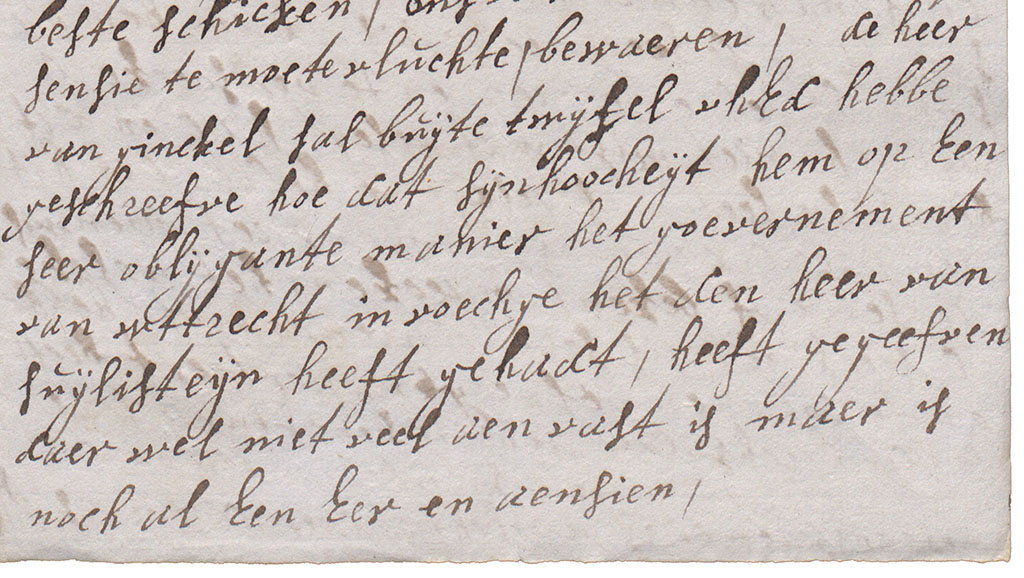 beste schicken, ons
sensie te moete rluchte, bewaeren, de heer
van ginckel sal buÿte twÿfel uhEd hebbe
geschreefve hoe dat sÿnhoocheÿt hem op Een
seer oblÿgante manier het goevernement
van wttrecht in voechge het den heer van
suÿlisteÿn heeft gehadt, heeft gegeefven
daer wel niet veel aen vast is maer is
noch al Een Eer en aensien,